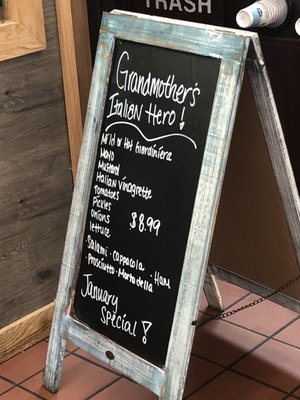 TRASH
Grandmother's
Italian Hero!
Mild or Hot Giardiniera
Mayo
Mustard
Italian Vinagrette
Tomatoes
Pickles
Onions
$8.99
lettuce
Salami · Cappacola · Ham
Prosciutto · Mortadella
January
Special!